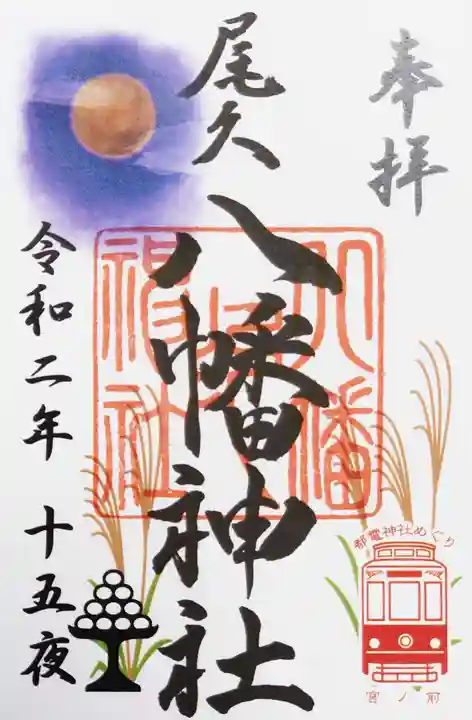 奉拝
尾久
八幡神社
令和二年 十五夜
八幡
神社
都電神社めぐり
宮ノ前